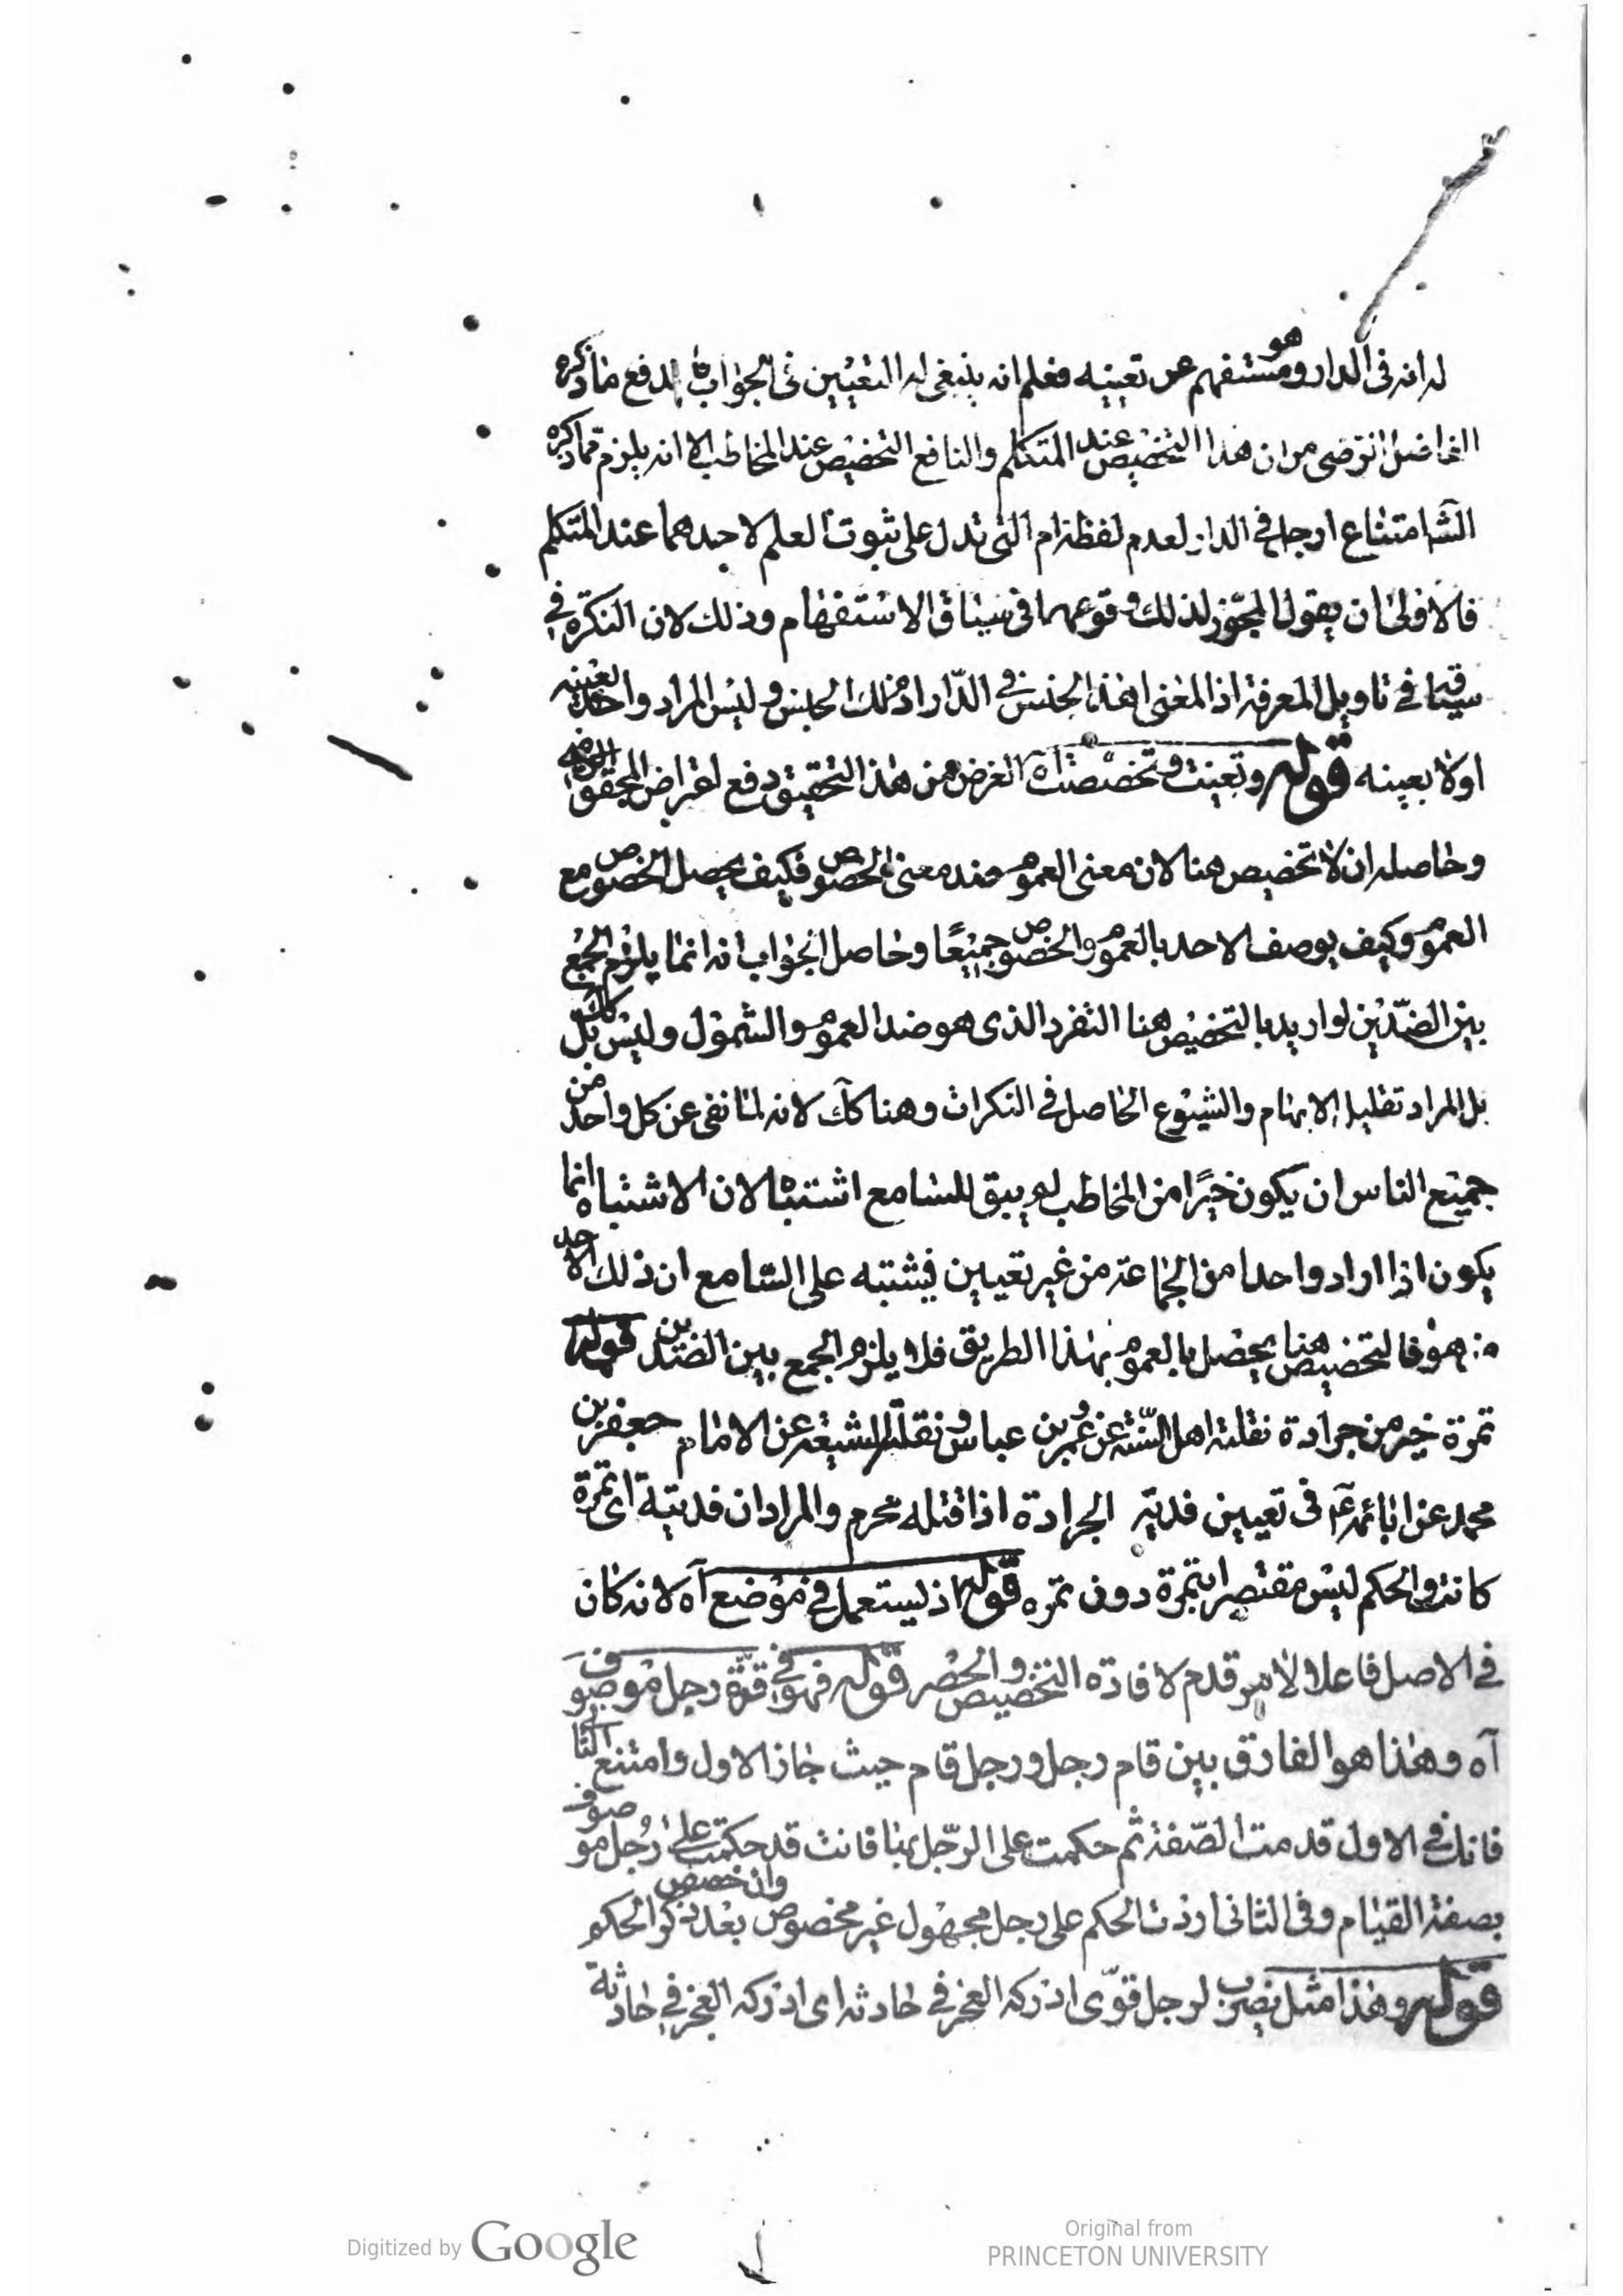 له انه فى الدار وهو مستفهم عن تعيينه فعلم انه ينبغى له التعيين فى الجواب فاندفع ما ذكره
الفاضل الرضى من ان هذا التخصيص عند المتكلم والنافع التخصيص عند المخاطب الا انه يلزم مما ذكره
الشا امتناع ارجل فى الدار لعدم لفظة ام التى تدل على ثبوت العلم لاحدهما عند المتكلم
فالاولى ان يقول المجوز لذلك وقوعهما فى سياق الاستفهام وذلك لان النكرة فى
سياقها فى تاويل المعرفة اذ المعنى اهذا الجنس فى الدار ام ذلك الجنس وليس المراد واحد بعينه
اولا بعينه قوله وتعينت وتخصصت آه الغرض من هذا التحقيق دفع اعتراض المحقق الرضى
وحاصله ان لا تخصيص هنا لان معنى العموم ضد معنى الخصوص فكيف يحصل الخصوص مع
العموم وكيف يوصف الاحد بالعموم والخصوص جميعًا وحاصل الجواب انه انما يلزم الجمع
بين الضدّين لو اريد بالتخصيص هنا التفرد الذى هو ضد العموم والشمول وليس كك بل
بل المراد تقليل الابهام والشيوع الحاصل فى النكرات وهنا كك لانه لما نفى عن كل واحد من
جميع الناس ان يكون خيرًا من المخاطب لم يبق للسامع اشتباه لان الاشتباه انما
يكون اذا اراد واحدا من الجماعة من غير تعيين فيشتبه على السامع ان ذلك الاحد
من هو فالتخصيص هنا يحصل بالعموم بهذا الطريق فلا يلزم الجمع بين الضدين قوله
تمرة خير من جرادة نقلته اهل السّنة عن عمر وبن عباس ونقلته الشيعة عن الامام جعفر بن
محمد عن ابائه ع فى تعيين فدية الجرادة اذا قتله محرم والمراد ان فديته اى تمرة
كانت والحكم ليس مقتصرا بتمرة دون تمره قوله اذ يستعمل فى موضع آه لانه كان
فى الاصل فاعلا ولامر قدم لافادة التخصيص والحصر قوله فهو فى قوّة رجل موصوف
آه وهذا هو الفارق بين قام رجل ورجل قام حيث جاز الاول وامتنع الثا
فانك فى الاول قدمت الصّفة ثم حكمت على الرّجل بها فانت قد حكمت على رجل موصوف
بصفة القيام وفى الثانى اردت الحكم على رجل مجهول غير مخصوص وان خصص بعد ذكر الحكم
قوله وهذا مثل يضرب لرجل قوّى ادركه العجز فى حادثه اى ادركه العجز فى حادثة
Digitized by Google
Original from
PRINCETON UNIVERSITY